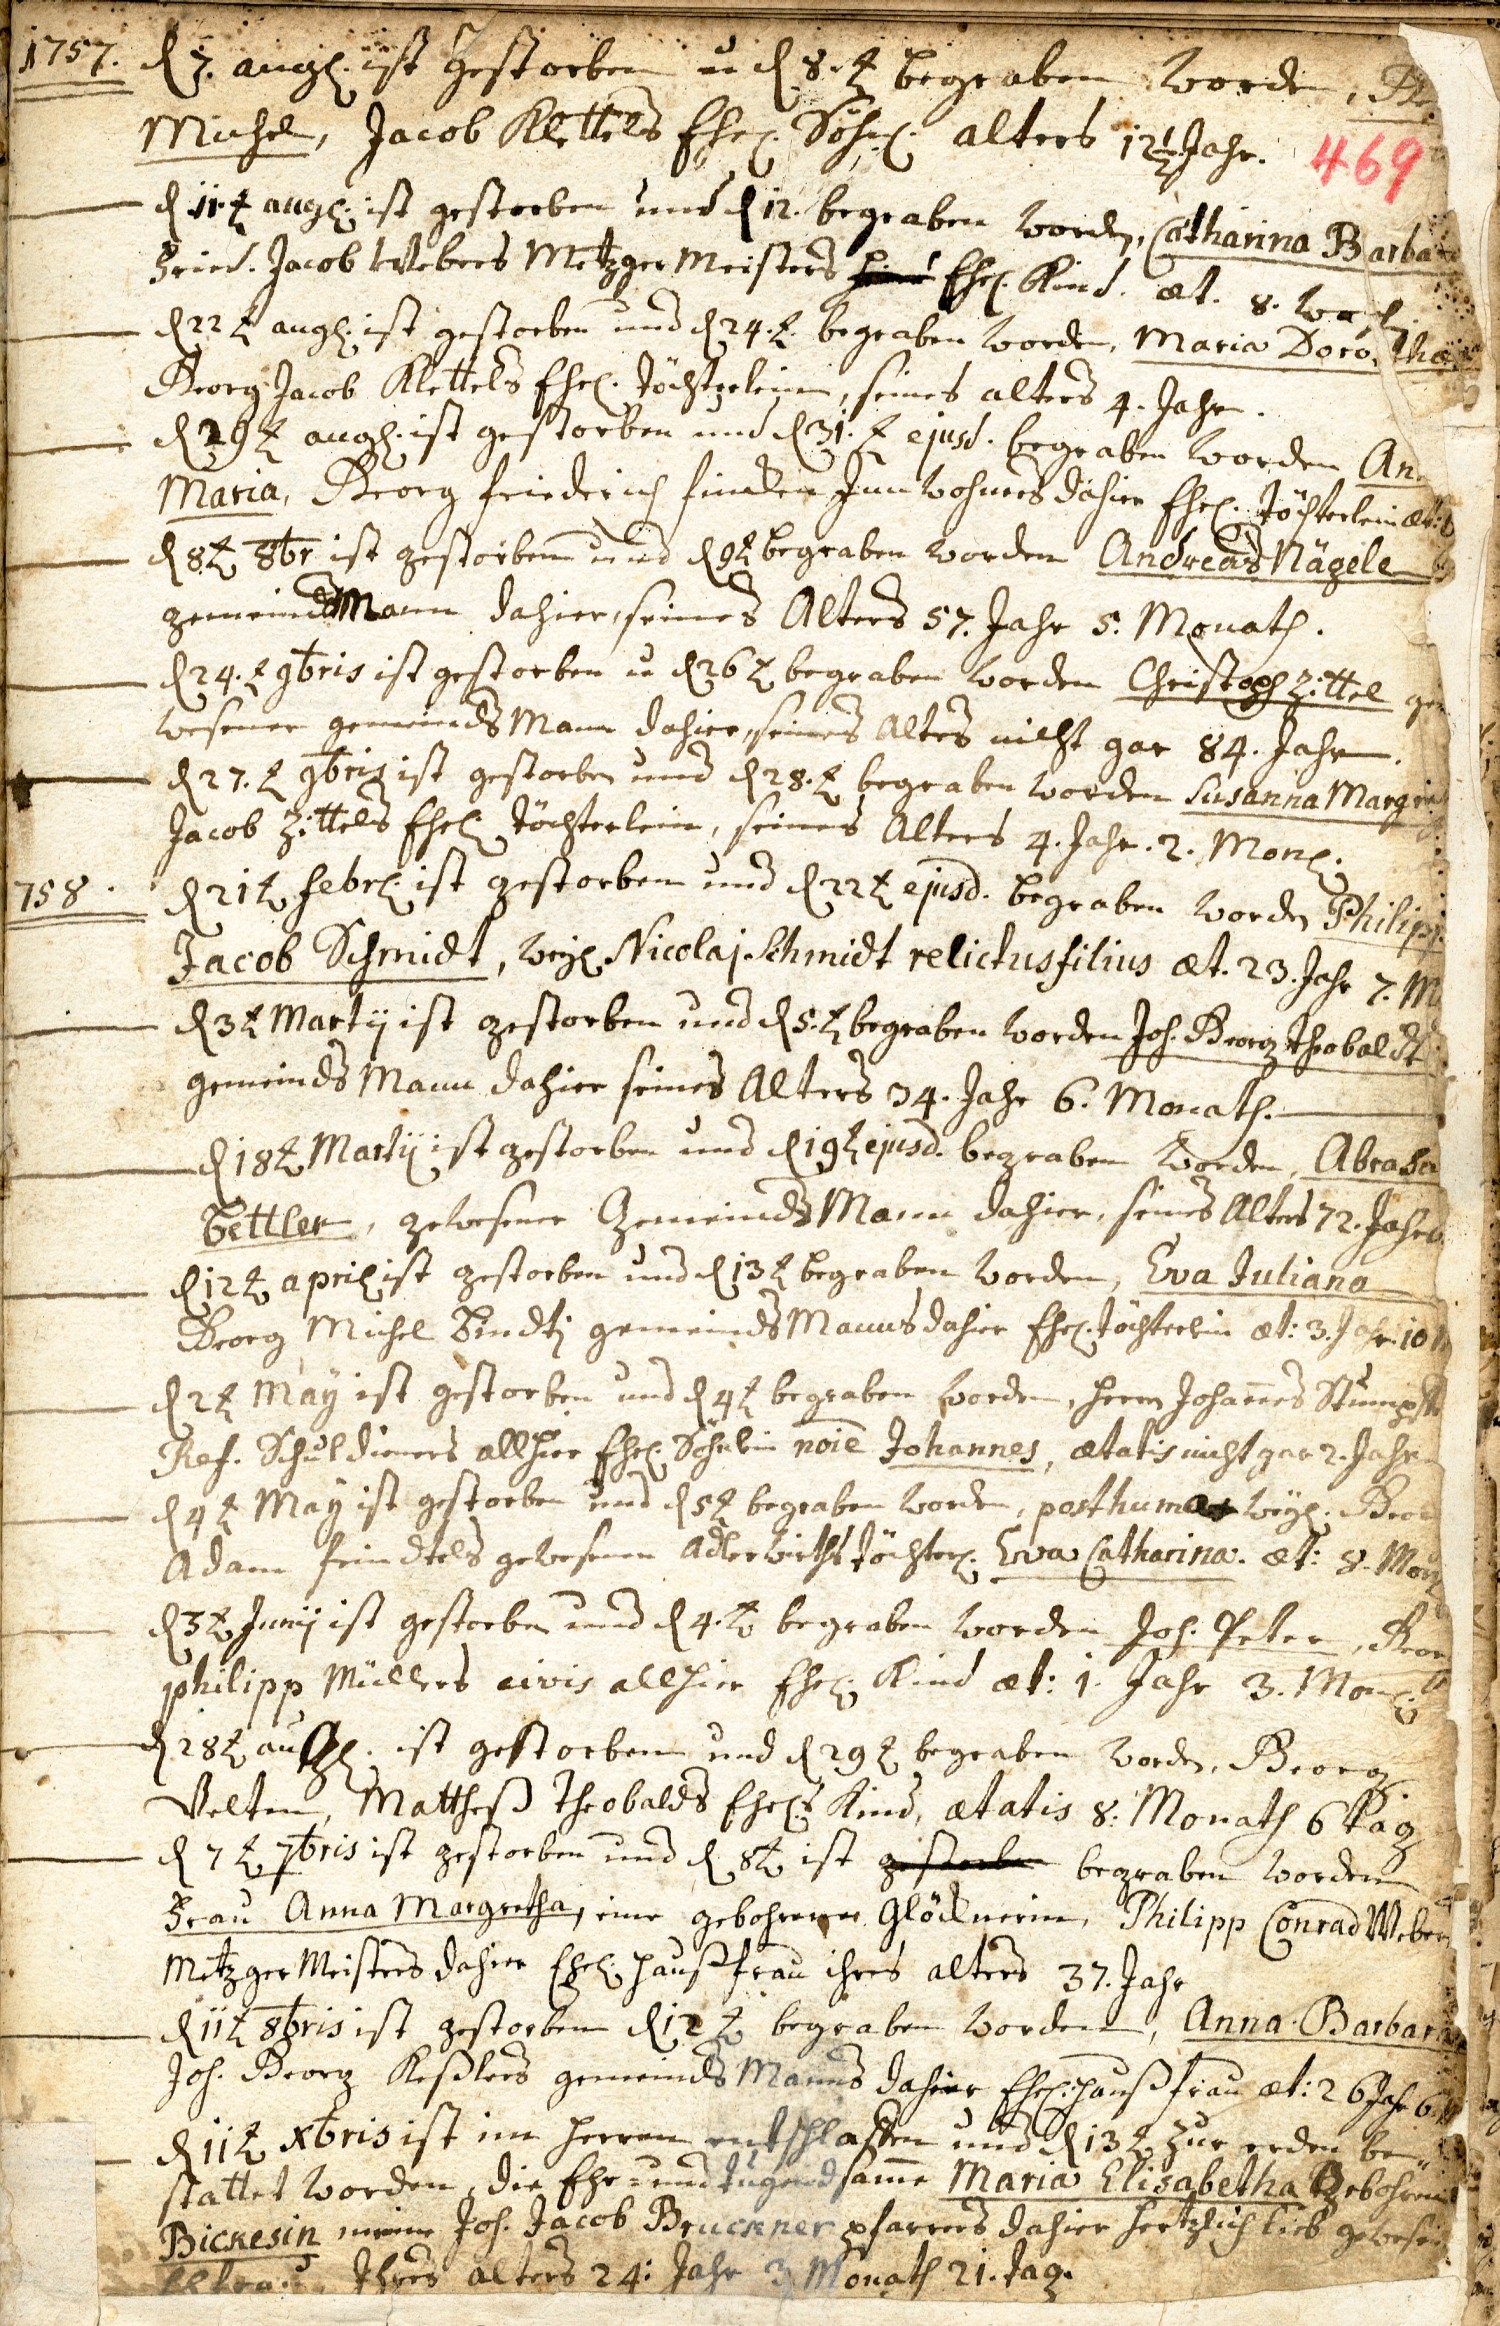 1757. d 7. aug. ist gestorben u d 8.t begraben worde,
Michel, Jacob Klettels Ehel. Söhnl. alters 12½ Jahr.
469
d 11.t aug. ist gestorben und d 12. begraben worden, Catharina Barba
Fried. Jacob Webers Metzger Meisters Ehel. Kind. æt. 8. woch.
d 22t aug. ist gestorben und d 24.t. begraben worden, Maria Dorothea
Georg Jacob Klettels Ehel. Töchterlein, seines alters 4. Jahr.
d 29t aug. ist gestorben und d 31.t ejusd. begraben worden An
Maria, Georg Friederich Finden Innwohners dahier Ehel. Töchterlein æt:
d 8.t 8br ist gestorben und d 9t begraben worden Andreas Nägele
gemeindsMann dahier, seines Alters 57. Jahr 5. Monath.
d 24.t 9bris ist gestorben u d 26t begraben worden Christoph Zittel ge
wesener gemeindsMann dahier, seines Alters nicht gar 84. Jahr.
d 27.t 9bris ist gestorben und d 28.t begraben worden Susanna Margre
Jacob Zittels Ehel. Töchterlein, seines Alters 4. Jahr. 2. Mon.
758. d 21t Febr. ist gestorben und d 22t ejusd. begraben worden Philipp
Jacob Schmidt, weyl. Nicolaj Schmidt relictus filius æt. 23. Jahr 7. M
d 3t Martij ist gestorben und d 5.t begraben worden Joh. Georg Theobaldt
gemeinds Mann dahier seines Alters 34. Jahr 6. Monath.
d 18t Martij ist gestorben und d 19t ejusd. begraben worden, Abraha
Bettler, gewesener GemeindsMann dahier, seines Alters 72. Jahr
d 12t april ist gestorben und d 13t begraben worden, Eva Juliana
Georg Michel gemeindsManns dahier Ehel. Töchterlein æt: 3. Jahr. 10
d 2t May ist gestorben und d 4t begraben worden, Herrn Johannes Stumpf
Ref. Schuldieners allhier Ehel. Söhnlein noie Johannes, ætatis nicht gar 2. Jahr
d 4t May ist gestorben und d 5t begraben worden, posthuma weyl. Geor
Adam Feindtels gewesenen Adlerwirths Töchterl. Eva Catharina. æt: 8. Mon
d 3t Junij ist gestorben und d 4.t begraben worden Joh. Peter, Geor
philipp Müllers civis allhier Ehel. Kind æt: 1. Jahr 3. Mon.
d 28t aug. ist gestorben und d 29t begraben worden, Georg
Velten, Mattheß Theobalds Ehel. Kind, ætatis 8. Monath 6 Täg
d 7t 7bris ist gestorben und d 8t ist gestorben begraben worden
Frau Anna Margretha, eine gebohrene Glöcknerin, Philipp Conrad Weber
Metzger Meisters dahier Ehel. Haußfrau ihres alters 37. Jahr
d 11t 8bris ist gestorben d 12t begraben worden, Anna Barbara
Joh. Georg Keßlers gemeinds Manns dahier Ehel. Haußfrau æt: 26 Jahr 6
d 11t xbris ist im Herren entschlaffen und d 13t zur erden be
stattet worden, die Ehr- und Tugendsame Maria Elisabetha Gebohrene
Bickesin meine Joh. Jacob Bruckner pfarrers dahier hertzlich lieb gewesene
Ihres alters 24: Jahr 3 Monath 21. Tag.